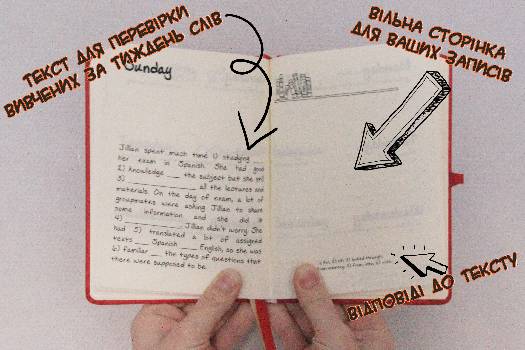 ТЕКСТ ДЛЯ ПЕРЕВІРКИ
ВИВЧЕНИХ ЗА ТИЖДЕНЬ СЛІВ
ВІЛЬНА СТОРІНКА
ДЛЯ ВАШИХ ЗАПИСІВ
Sunday
Jillian spent much time 1) studying __
her exam in Spanish. She had good
2) knowledge __ the subject but she still
3) __ all the lectures and
materials. On the day of exam, a lot of
groupmates were asking Jillian to share
some information and she did it
4) __ Jillian didn't worry. She
had 5) translated a lot of assigned
texts __ Spanish __ English, so she was
6) familiar __ the types of questions that
there were supposed to be.
ВІДПОВІДІ ДО ТЕКСТУ